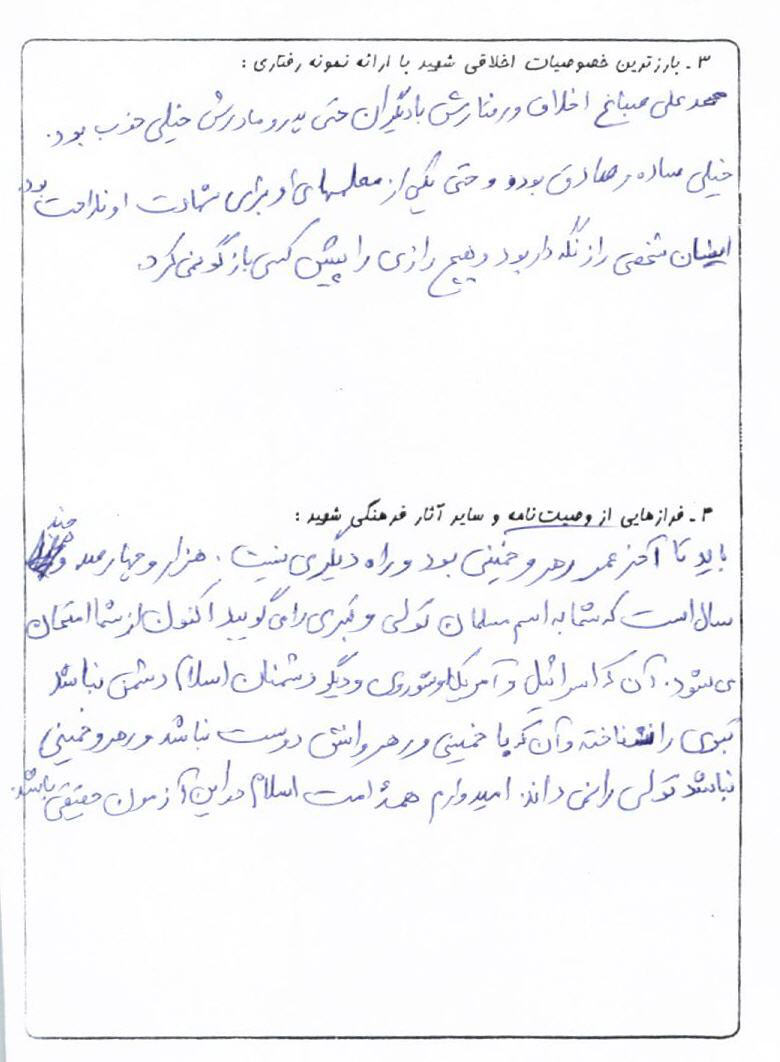 ۳ - بارزترین خصوصیات اخلاقی شهید با ارائه نمونه رفتاری :
محمد علی صباغ اخلاق و رفتارش با دیگران حتی پدر و مادرش خیلی خوب بود.
خیلی ساده و صادق بود و حتی یکی از معلمهای او برای شهادت او ناراحت بود.
ایشان شخصی رازنگهدار بود و هیچ رازی را پیش کسی بازگو نمی کرد.
۴ - فرازهایی از وصیت نامه و سایر آثار فرهنگی شهید :
باید تا آخر عمر رهرو خمینی بود و راه دیگری نیست . هزار و چهارصد و چند
سال است که شما به اسم مسلمان تولی و تبری را می گویید اکنون از شما امتحان
می شود . آن که اسرائیل و آمریکا و شوروی و دیگر دشمنان اسلام دشمن نباشد
تبری را نشناخته و آن که با خمینی و رهروانش دوست نباشد و رهرو خمینی
نباشد تولی را نمی داند . امیدوارم همهٔ امت اسلام در این آزمون حقیقی باشد.